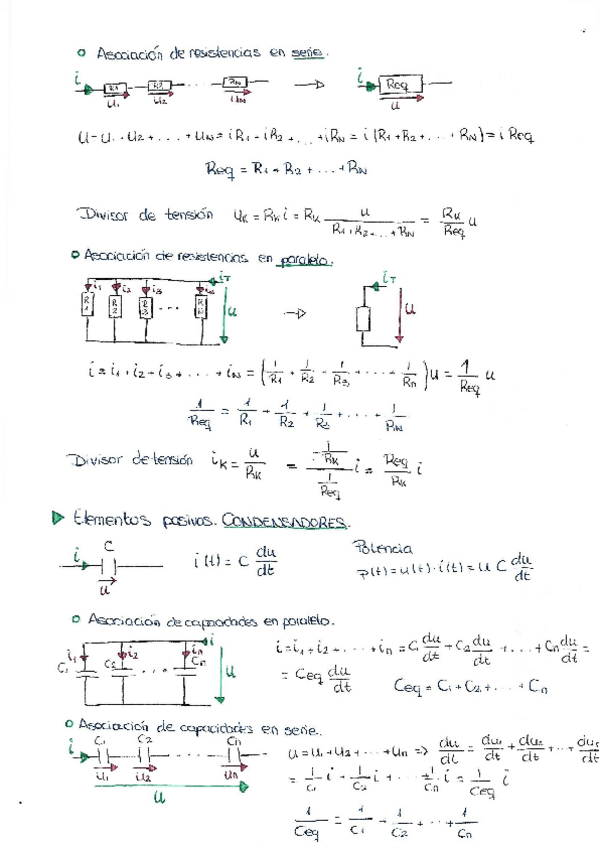 o Asociación de resistencias en serie.
i R1 R2 ... RN → i Req
u1 u2 uN u
u = u1 + u2 + ... + uN = iR1 + iR2 + ... + iRN = i (R1+R2+...+RN) = i Req
Req = R1 + R2 + ... + RN
Divisor de tensión uK = RK i = RK u/(R1+R2+...+RN) = RK/Req u
o Asociación de resistencias en paralelo.
i1 i2 i3 iN iT iT
R1 R2 R3 ... RN u → u
i = i1 + i2 + i3 + ... + iN = (1/R1 + 1/R2 + 1/R3 + ... + 1/Rn) u = 1/Req u
1/Req = 1/R1 + 1/R2 + 1/R3 + ... + 1/RN
Divisor de tensión iK = u/RK = (1/RK)/(1/Req) i = Req/RK i
▷ Elementos pasivos. CONDENSADORES.
i C u
i(t) = C du/dt
Potencia
p(t) = u(t)·i(t) = u C du/dt
o Asociación de capacidades en paralelo.
i1 i2 in i
C1 C2 ... Cn u
i = i1 + i2 + ... + in = C1 du/dt + C2 du/dt + ... + Cn du/dt =
= Ceq du/dt Ceq = C1 + C2 + ... + Cn
o Asociación de capacidades en serie.
i C1 C2 ... Cn
u1 u2 un
u
u = u1 + u2 + ... + un => du/dt = du1/dt + du2/dt + ... + dun/dt
= 1/C1 i + 1/C2 i + ... + 1/Cn i = 1/Ceq i
1/Ceq = 1/C1 + 1/C2 + ... + 1/Cn